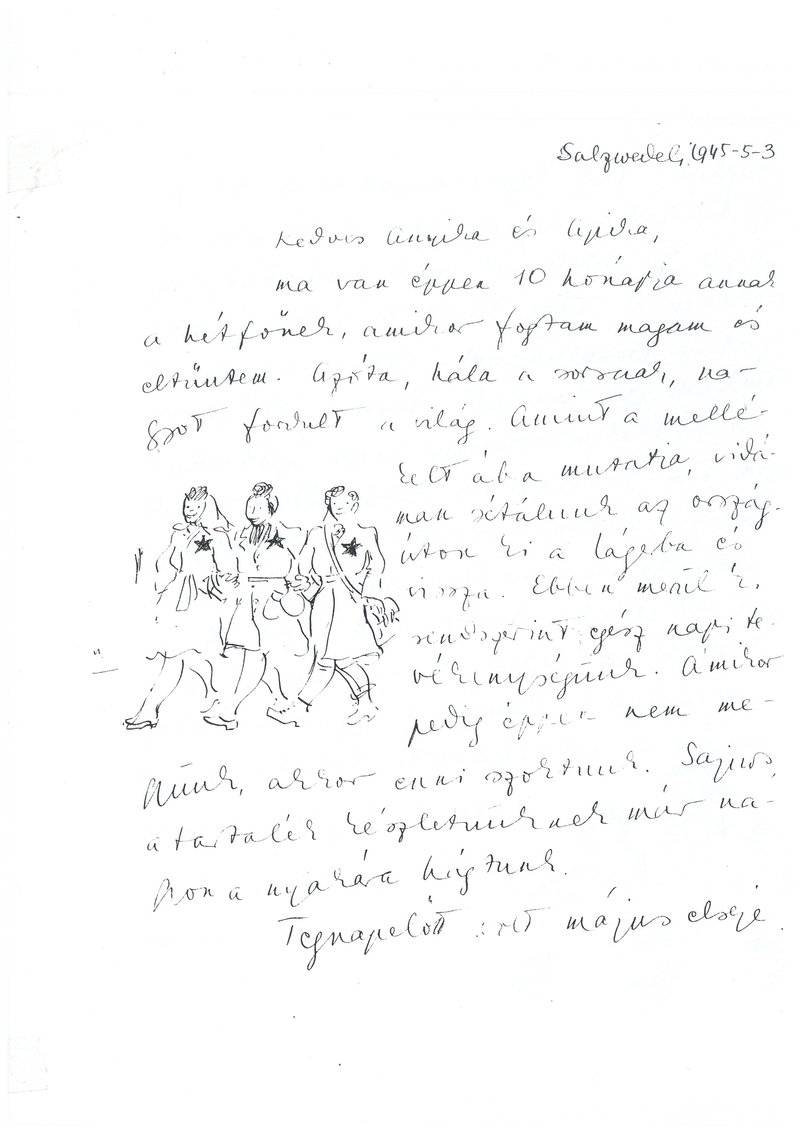 Salzwedel, 1945-5-3
Kedves Anyika és Apika,
ma van éppen 10 hónapja annak
a hétfőnek, amikor fogtam magam és
eltűntem. Azóta, hála a sorsnak, na-
gyot fordult a világ. Amint a mellé-
kelt ábra mutatja, vidá-
man sétálunk az ország-
úton ki a lágerba és
vissza. Ebben merül ki
rendszerint egész napi te-
vékenységünk. Amikor
pedig éppen nem me-
gyünk, akkor enni szoktunk. Sajnos,
a tartalék készletünknek már na-
gyon a nyakára hágtunk.
Tegnapelőtt volt május elseje.